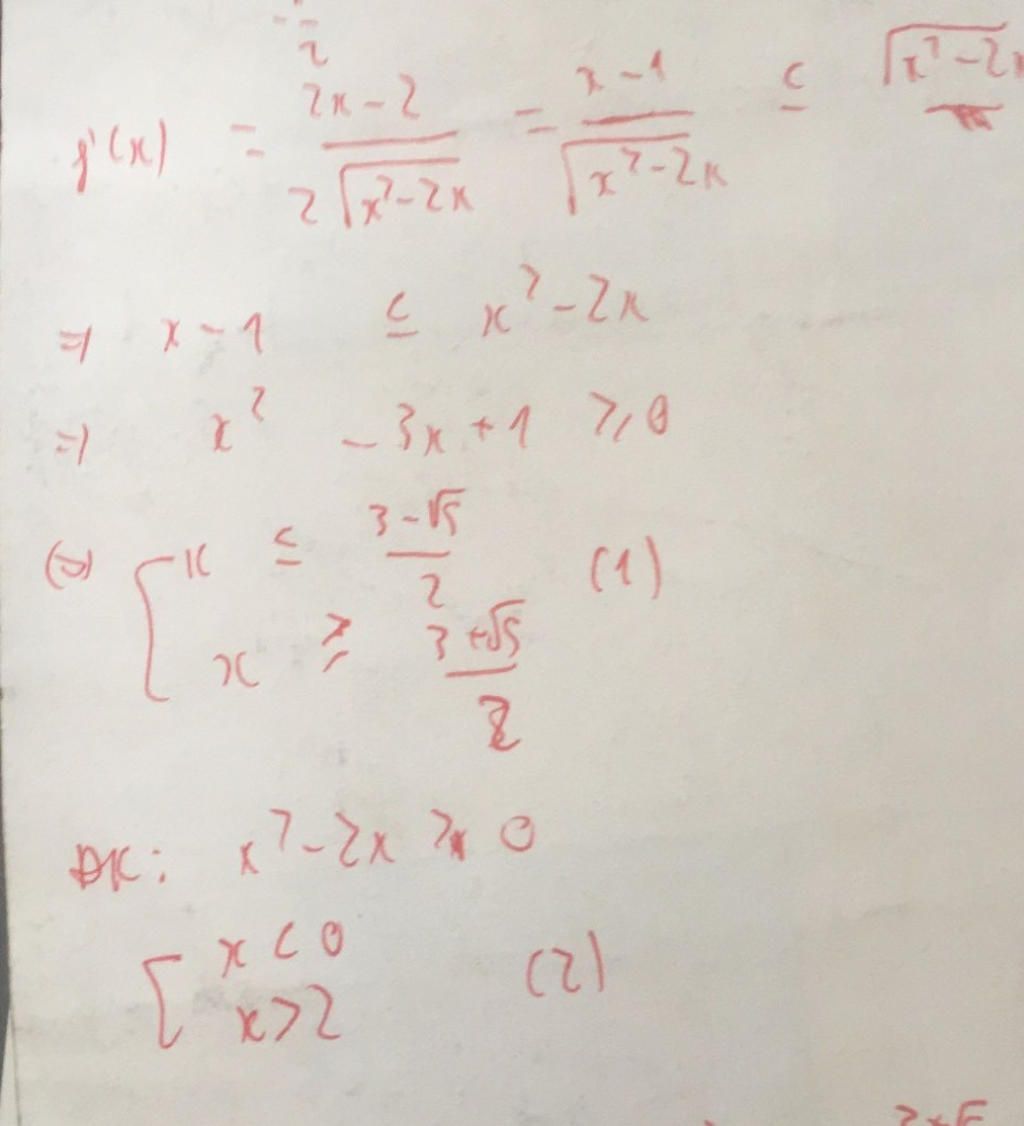 2
f'(x) = (2x - 2)/(2√(x² - 2x)) = (x - 1)/√(x² - 2x) ≤ √(x² - 2x
⇒ x - 1 ≤ x² - 2x
⇒ x² - 3x + 1 ≥ 0
(⇒) [ x ≤ (3 - √5)/2 (1)
x ≥ (3 + √5)/2
ĐK: x² - 2x > 0
[ x < 0 (2)
x > 2